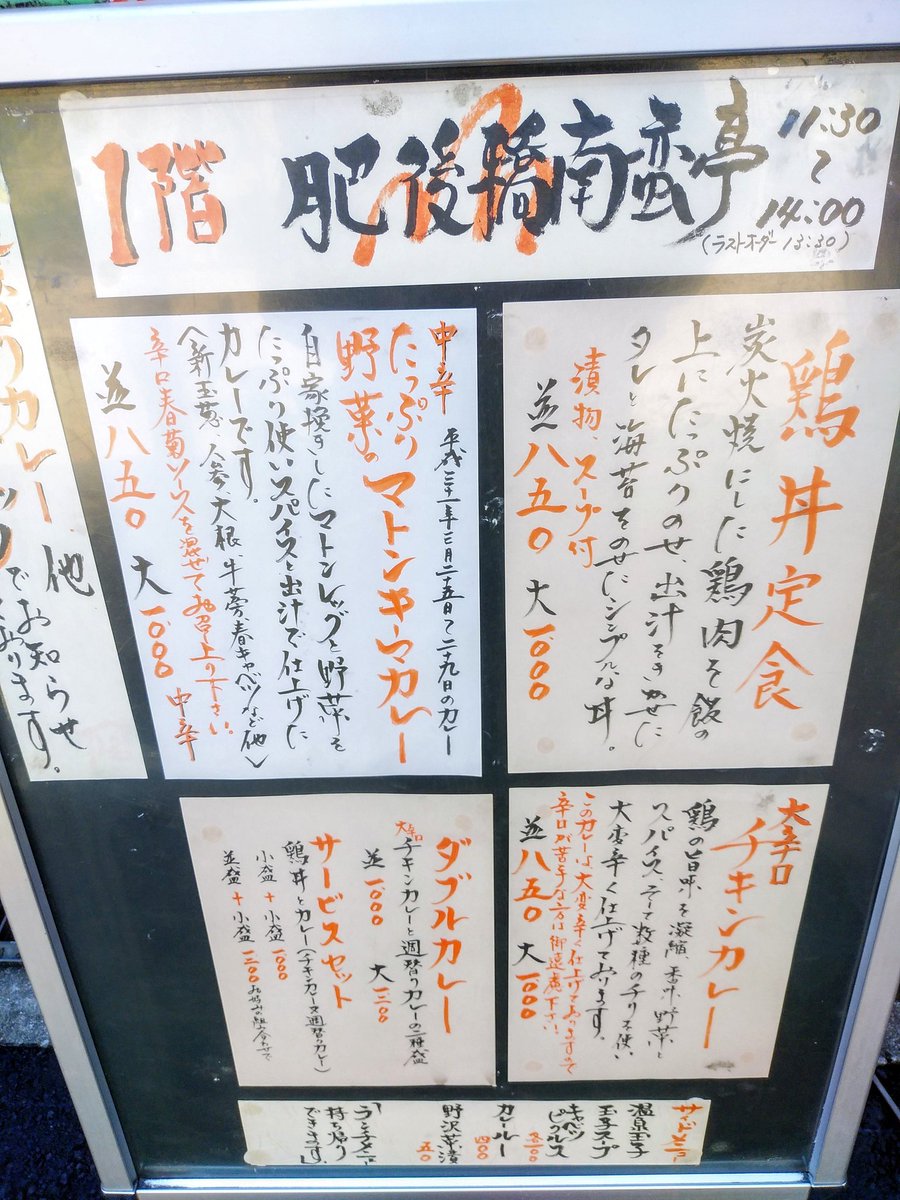 1階 肥後橋南蛮亭 11:30
〜
14:00
(ラストオーダー 13:30)
鶏丼定食
炭火焼にした鶏肉を飯の
上にたっぷりのせ、出汁をきかせた
タレと海苔をのせたシンプルな丼。
漬物、スープ付
並 八五〇 大 一、〇〇〇
平成三十一年三月二五日〜二十九日のカレー
中辛
たっぷり
野菜の
マトンキーマカレー
自家挽きしたマトンレッグと野菜を
たっぷり使いスパイスと出汁で仕上げた
カレーです。
〈新玉葱、人参、大根、牛蒡、春キャベツなど他〉
辛口春菊ソースを混ぜてお召し上り下さい。
並 八五〇 大 一、〇〇〇 中辛
カレー 他
でお知らせ
ております。
大辛口
チキンカレー
鶏の旨味を凝縮、香味野菜と
スパイス、そして数種のチリを使い
大変辛く仕上げております。
このカレーは大変辛く仕上げておりますので
辛口が苦手な方は御遠慮下さい。
並 八五〇 大 一、〇〇〇
ダブルカレー
大辛口
チキンカレーと週替りカレーの二種盛
並 一、〇〇〇 大 一、三〇〇
サービスセット
鶏丼とカレー(チキンカレー又は週替りカレー)
小盛 + 小盛 一、〇〇〇
並盛 + 小盛 一、二〇〇 お好みの組合わせで
サイドメニュー
温泉玉子
玉子スープ
キャベツ
ピクルス
各一〇〇
カレールー
四〇〇
野沢菜漬
五〇
「ランチメニュー
持ち帰り
できます」